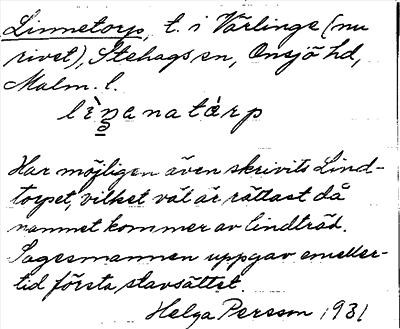 Linnetorp, t. i Värlinge (nu
rivet), Stehags sn, Onsjö hd,
Malm. l.
lìn̥anatàrp
Har möjligen även skrivits Lind-
torpet, vilket väl är rättast då
namnet kommer av lindträd.
Sagesmannen uppgav emeller-
tid första stavsättet.
Helga Persson 1931